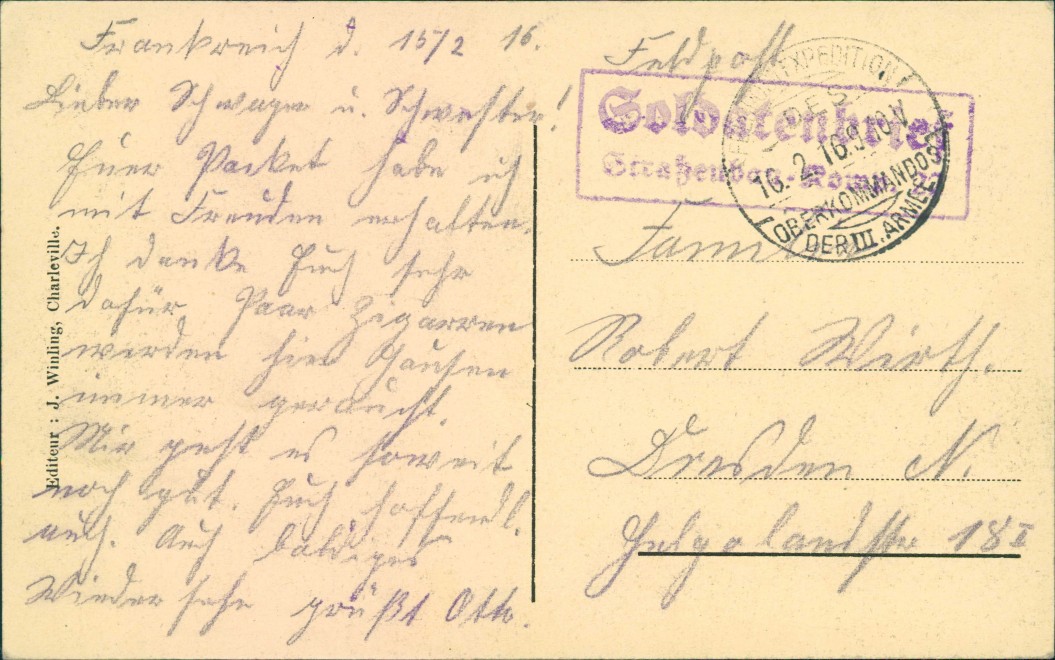 Frankreich d. 15/2 16.
Lieber Schwager u. Schwester!
Euer Packet habe ich
mit Freuden erhalten.
Ich danke Euch sehr
dafür. Paar Zigarren
werden hier
immer geraucht.
Mir geht es soweit
noch gut. Euch hoffendl.
auch. Auf baldiges
Wiedersehn grüßt Otto.
Editeur : J. Winling, Charleville.
Feldpost
Soldatenbrief
Straßenbau-
EXPEDITION
DES
16.2.16.9-10V
OBERKOMMANDOS
DER III. ARMEE
Familie
Robert Wirth.
Dresden N.
Helgolandstr 18 I